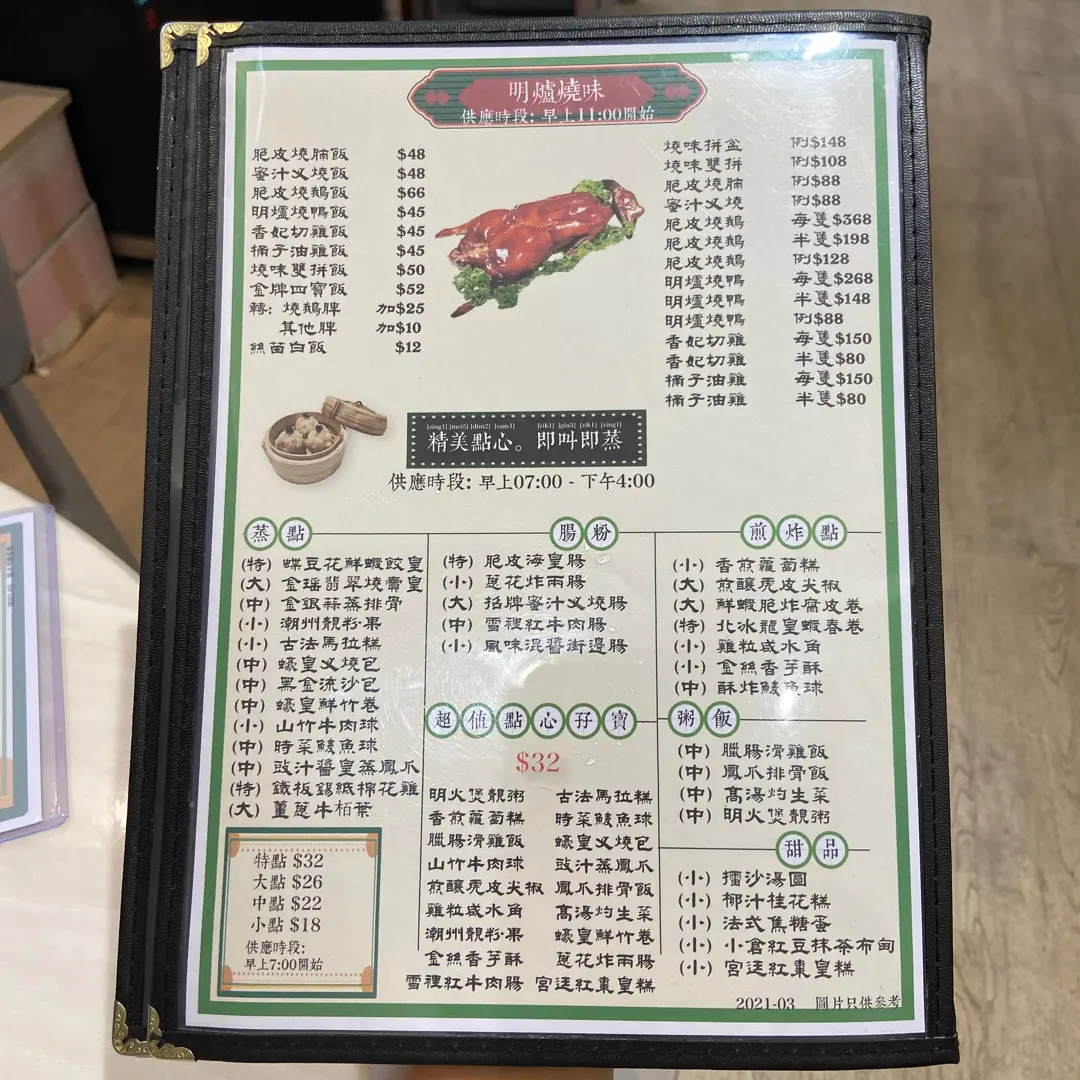 明爐燒味
供應時段: 早上11:00開始
脆皮燒腩飯 $48
蜜汁叉燒飯 $48
脆皮燒鵝飯 $66
明爐燒鴨飯 $45
香妃切雞飯 $45
桶子油雞飯 $45
燒味雙拼飯 $50
金牌四寶飯 $52
轉: 燒鵝脾 加$25
其他脾 加$10
絲苗白飯 $12
燒味拼盆 例$148
燒味雙拼 例$108
脆皮燒腩 例$88
蜜汁叉燒 例$88
脆皮燒鵝 每隻$368
脆皮燒鵝 半隻$198
脆皮燒鵝 例$128
明爐燒鴨 每隻$268
明爐燒鴨 半隻$148
明爐燒鴨 例$88
香妃切雞 每隻$150
香妃切雞 半隻$80
桶子油雞 每隻$150
桶子油雞 半隻$80
[zing1] [mei5] [dim2] [sam1] [zik1] [giu3] [zik1] [zing1]
精美點心。即叫即蒸
供應時段: 早上07:00 - 下午4:00
蒸點
(特) 蝶豆花鮮蝦餃皇
(大) 金瑤翡翠燒賣皇
(中) 金銀蒜蒸排骨
(小) 潮州靚粉果
(小) 古法馬拉糕
(中) 蠔皇叉燒包
(中) 黑金流沙包
(中) 蠔皇鮮竹卷
(小) 山竹牛肉球
(中) 時菜鯪魚球
(中) 豉汁醬皇蒸鳳爪
(特) 鐵板錫紙棉花雞
(大) 薑蔥牛栢葉
特點 $32
大點 $26
中點 $22
小點 $18
供應時段:
早上7:00開始
腸粉
(特) 脆皮海皇腸
(小) 蔥花炸兩腸
(大) 招牌蜜汁叉燒腸
(中) 雪裡紅牛肉腸
(小) 風味混醬街邊腸
超值點心孖寶
$32
明火煲靚粥 古法馬拉糕
香煎蘿蔔糕 時菜鯪魚球
臘腸滑雞飯 蠔皇叉燒包
山竹牛肉球 豉汁蒸鳳爪
煎釀虎皮尖椒 鳳爪排骨飯
雞粒咸水角 高湯灼生菜
潮州靚粉果 蠔皇鮮竹卷
金絲香芋酥 蔥花炸兩腸
雪裡紅牛肉腸 宮廷紅棗皇糕
煎炸點
(小) 香煎蘿蔔糕
(大) 煎釀虎皮尖椒
(大) 鮮蝦脆炸腐皮卷
(特) 北冰龍皇蝦春卷
(小) 雞粒咸水角
(小) 金絲香芋酥
(中) 酥炸鯪魚球
粥飯
(中) 臘腸滑雞飯
(中) 鳳爪排骨飯
(中) 高湯灼生菜
(中) 明火煲靚粥
甜品
(小) 擂沙湯圓
(小) 椰汁桂花糕
(小) 法式焦糖蛋
(小) 小倉紅豆抹茶布甸
(小) 宮廷紅棗皇糕
2021-03 圖片只供參考